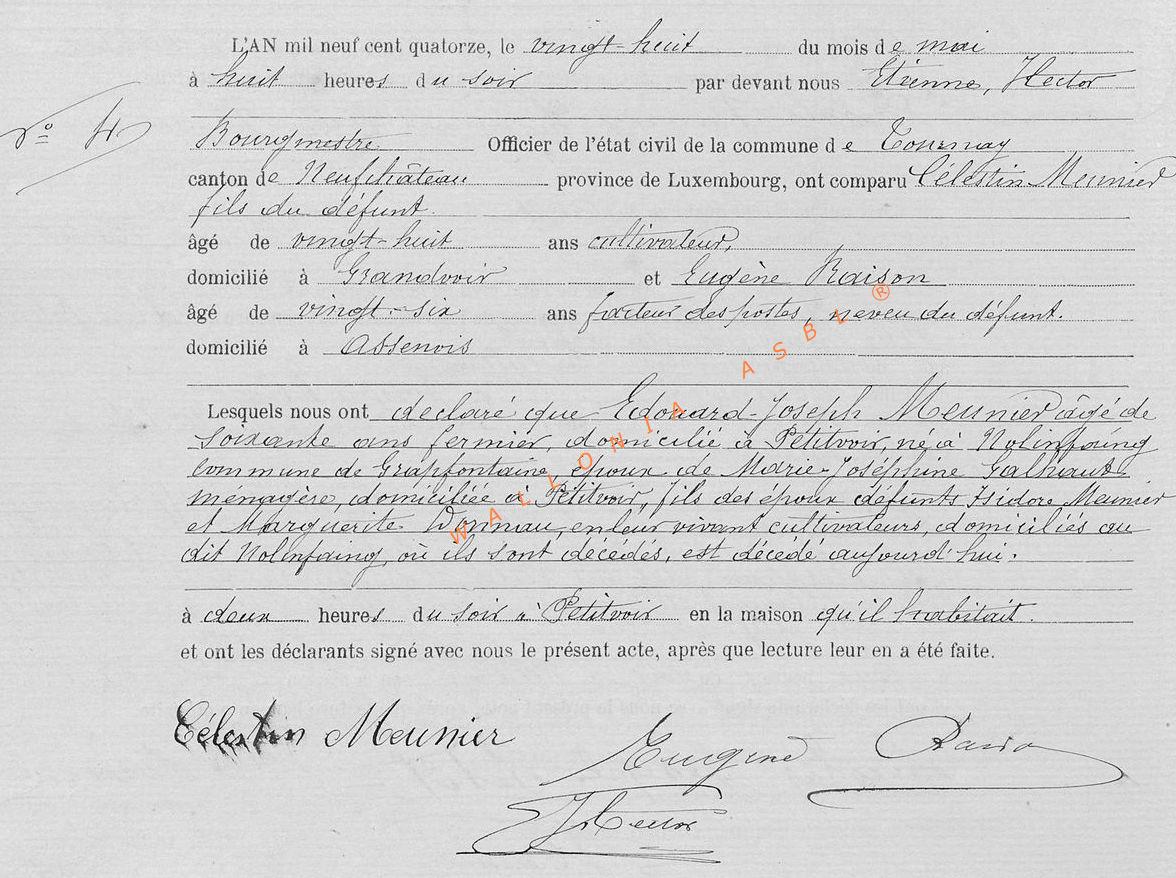 L'AN mil neuf cent quatorze, le vingt-huit du mois de mai
à huit heures du soir par devant nous Etienne, Hector
N° 4
Bourgmestre Officier de l'état civil de la commune de Tournay
canton de Neufchâteau province de Luxembourg, ont comparu Célestin Meunier
fils du défunt.
âgé de vingt-huit ans cultivateur,
domicilié à Grandvoir et Eugène Raison
âgé de vingt-six ans facteur des postes, neveu du défunt.
domicilié à Assenois
Lesquels nous ont declaré que Edouard-Joseph Meunier âgé de
soixante ans fermier, domicilié à Petitvoir, né à Nolinfaing
commune de Grapfontaine, époux de Marie-Joséphine
ménagère, domiciliée à Petitvoir, fils des époux défunts Isidore Meunier
et Marguerite en leur vivant cultivateurs, domiciliés au
dit Nolinfaing, où ils sont décédés, est décédé aujourd'hui.
à deux heures du soir à Petitvoir en la maison qu'il habitait.
et ont les déclarants signé avec nous le présent acte, après que lecture leur en a été faite.
Célestin Meunier
Eugène
Hector
WALLONIA ASBL ®